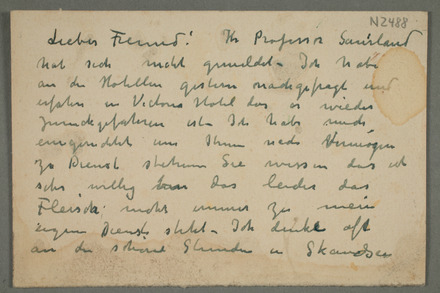 N2488
Lieber Freund! Ihr Professor Sauerland
hat sich nicht gemeldet. Ich habe
an den Hotellen gestern nachgefragt und
erfahren in Victoria Hotel das er wieder
zurückgefahren ist. Ich habe mich
eingerichtet um Ihnen nach Vermögen
zu Dienst stehen Sie wissen das ich
sehr willig bin das leider das
Fleisch nicht immer zu mein
eigen Dienst steht. Ich denke oft
an die schöne Stunden in